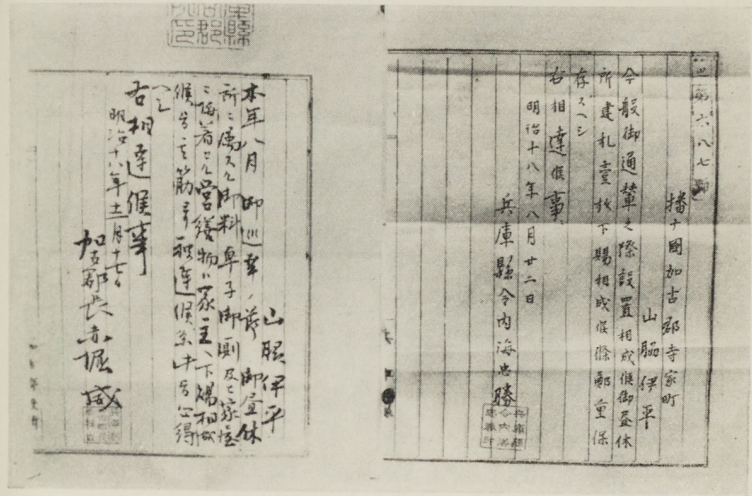 播十國加古郡寺家町
山脇伊平
今般御通輦之際設置相成候御晝休
所建札壹枚下賜相成候條鄭重保
存スヘシ
右相達候事
明治十八年八月廿二日
兵庫縣令内海忠勝
山脇伊平
本年八月御巡幸ノ節御晝休
所ニ属スル御料卓子御厠及ヒ家屋
ニ附着セル營繕物ハ家主ヘ下賜相成
候
右相達候事
明治十八年十一月十七日
加古郡長赤堀威